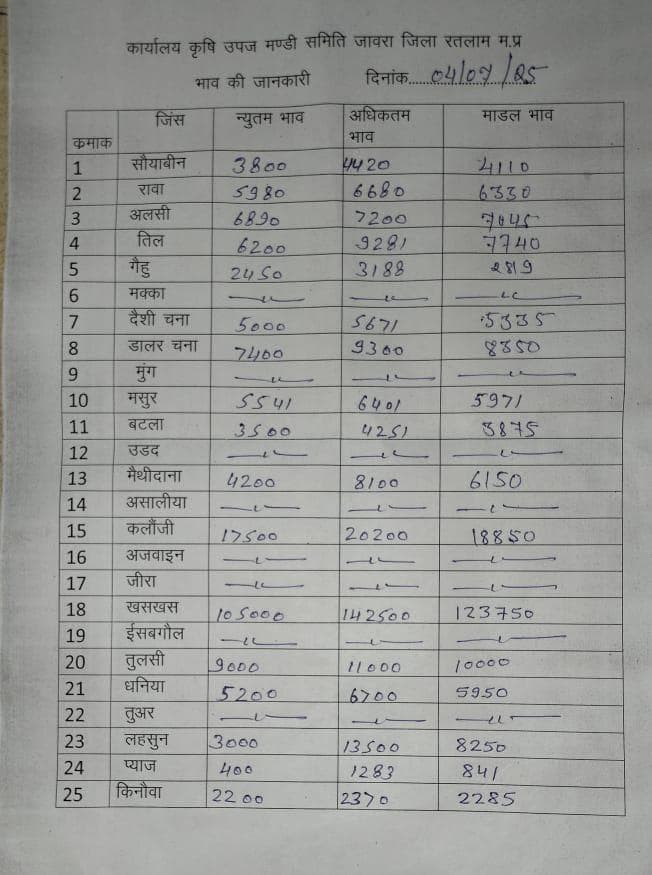 कार्यालय कृषि उपज मण्डी समिति जावरा जिला रतलाम म.प्र
भाव की जानकारी दिनांक......04/07/25
कमाक जिंस न्युतम भाव अधिकतम भाव माडल भाव
1 सौयाबीन 3800 4420 4110
2 रावा 5980 6680 6330
3 अलसी 6890 7200 7045
4 तिल 6200 9281 7740
5 गैहु 2450 3188 2819
6 मक्का —〃— —〃— —〃—
7 दैशी चना 5000 5671 5335
8 डालर चना 7400 9300 8350
9 मुंग —〃— —〃— —〃—
10 मसुर 5541 6401 5971
11 बटला 3500 4251 3875
12 उडद —〃— —〃— —〃—
13 मैथीदाना 4200 8100 6150
14 असालीया —〃— —〃— —〃—
15 कलौंजी 17500 20200 18850
16 अजवाइन —〃— —〃— —〃—
17 जीरा —〃— —〃— —〃—
18 खसखस 105000 142500 123750
19 ईसबगौल —〃— —〃— —〃—
20 तुलसी 9000 11000 10000
21 धनिया 5200 6700 5950
22 तुअर —〃— —〃— —〃—
23 लहसुन 3000 13500 8250
24 प्याज 400 1283 841
25 किनौवा 2200 2370 2285